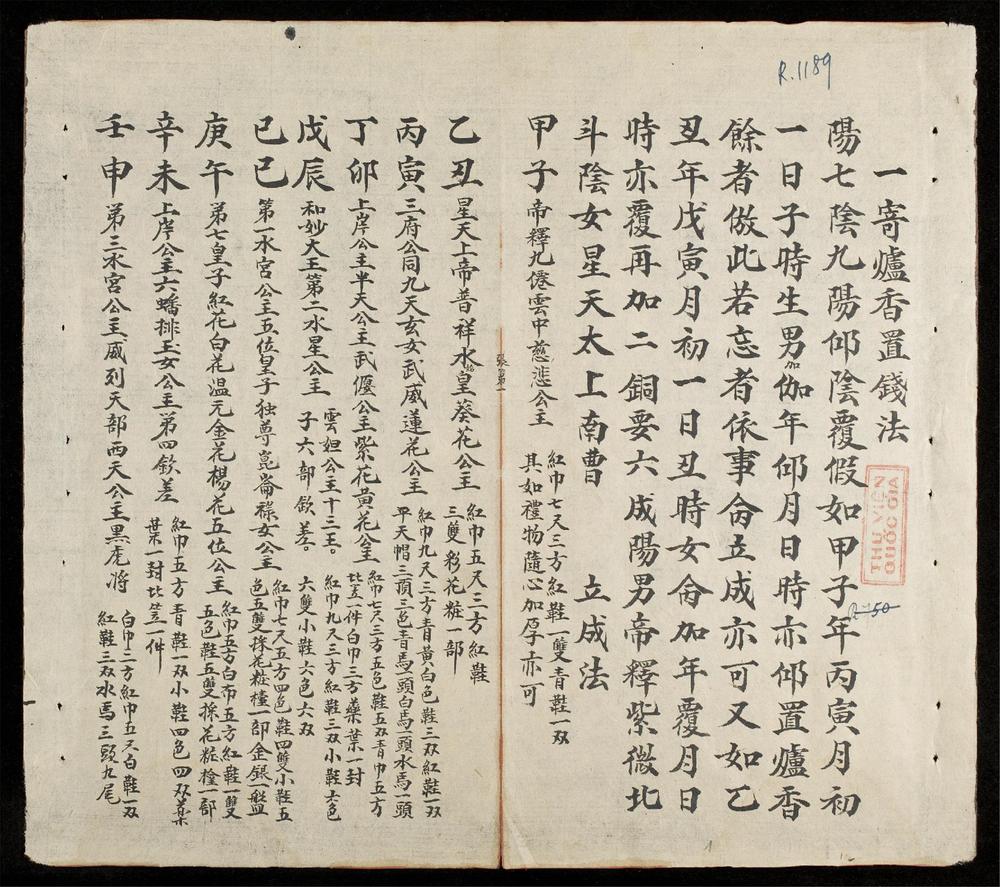 R.1189
一寄爐香置錢法
陽七陰九陽仰陰覆假如甲子年丙寅月初
一日子時生男加伽年仰月日時亦仰置爐香
餘者倣此若忘者依事侖立成亦可又如乙
丑年戊寅月初一日丑時女侖加年覆月日
時亦覆再加二銅要六成陽男帝釋紫微北
斗陰女星天太上南曹 立成法
甲子帝釋九僊雲中慈悲公主
紅巾七尺三方紅鞋一雙青鞋一双
其如禮物隨心加厚亦可
乙丑星天上帝普祥水皇葵花公主
紅巾五尺三方紅鞋
三雙彩花粧一部
丙寅三府公同九天玄女武威蓮花公主
紅巾九尺三方青黃白色鞋三双紅鞋一双
平天帽三頂三色青馬一頭白馬一頭水馬一頭
丁卯上岸公主半天公主武優公主紫花黃花公主
紅巾七尺三方五色鞋五双青巾五方
比笠一件白巾三方藥葉一封
戊辰和妙大王第二水星公主
雲妲公主十三王。
子六部欽差。
紅巾九尺三方紅鞋三双小鞋六色
六雙小鞋六色六双
己巳第一水宮公主五位皇子独尊崑崙祿女公主
紅巾七尺五方四色鞋四雙小鞋五
色五雙採花粧樓一部金銀一盤
庚午第七皇子紅花白花温元金花楊花五位公主
紅巾五方白布五方紅鞋一雙
五色鞋五雙採花粧樓一部
辛未上岸公主六蟠排玉女公主第四欽差
紅巾五方青鞋一双小鞋四色四双藥
葉一封比笠一件
壬申第三水宮公主威列天部西天公主黑虎將
白巾二方紅巾五尺白鞋一双
紅鞋三双水馬三頭九尾
THƯ VIỆN
QUỐC GIA